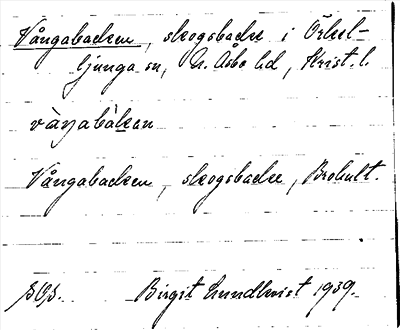 Vångabacken, skogsbacke i Örkel-
ljunga sn, N. Åsbo hd, Krist. l.
vàŋabàkan
Vångabacken, skogsbacke, Brohult.
Birgit Lundkvist 1939.